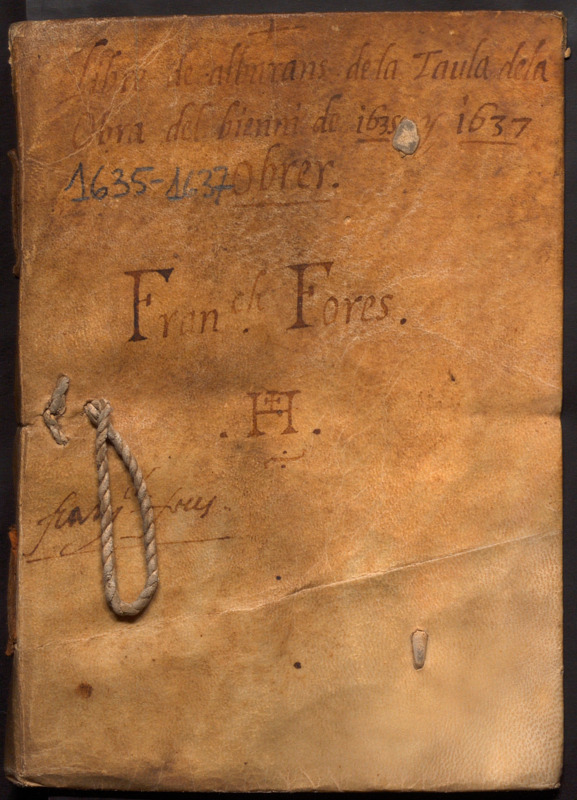 Llibre de albarans de la Taula de la
Obra del bienni de 1635 y 1637
1635-1637 obrer.
Fran.ch Fores.
. H .